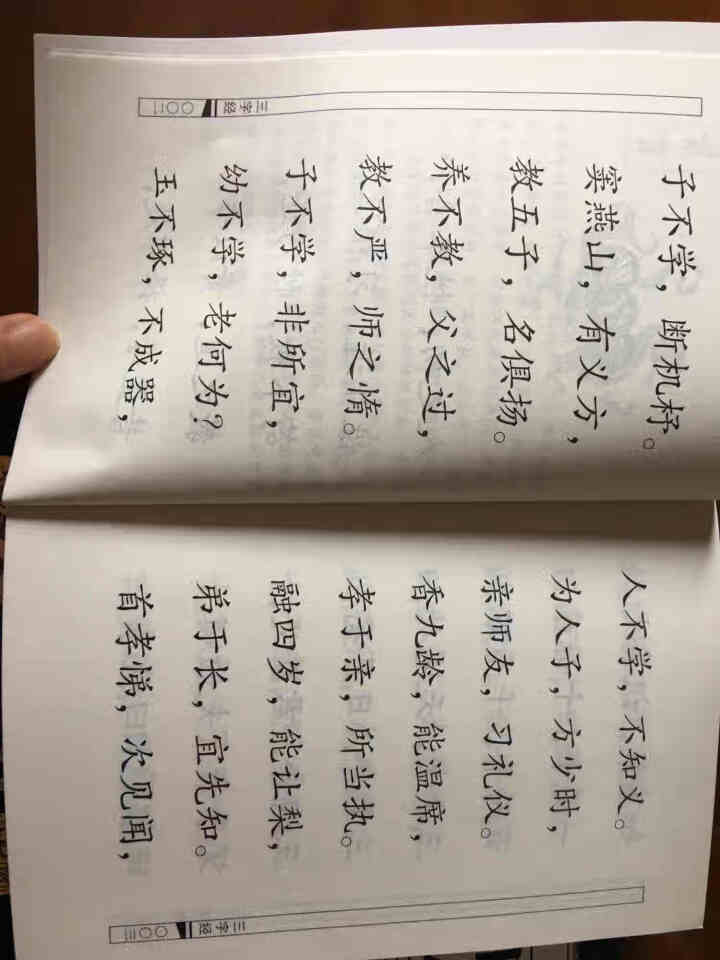 三字经 〇〇二
子不学，断机杼。
窦燕山，有义方，
教五子，名俱扬。
养不教，父之过，
教不严，师之惰。
子不学，非所宜，
幼不学，老何为？
玉不琢，不成器，
人不学，不知义。
为人子，方少时，
亲师友，习礼仪。
香九龄，能温席，
孝于亲，所当执。
融四岁，能让梨，
弟于长，宜先知。
首孝悌，次见闻，
三字经 〇〇三